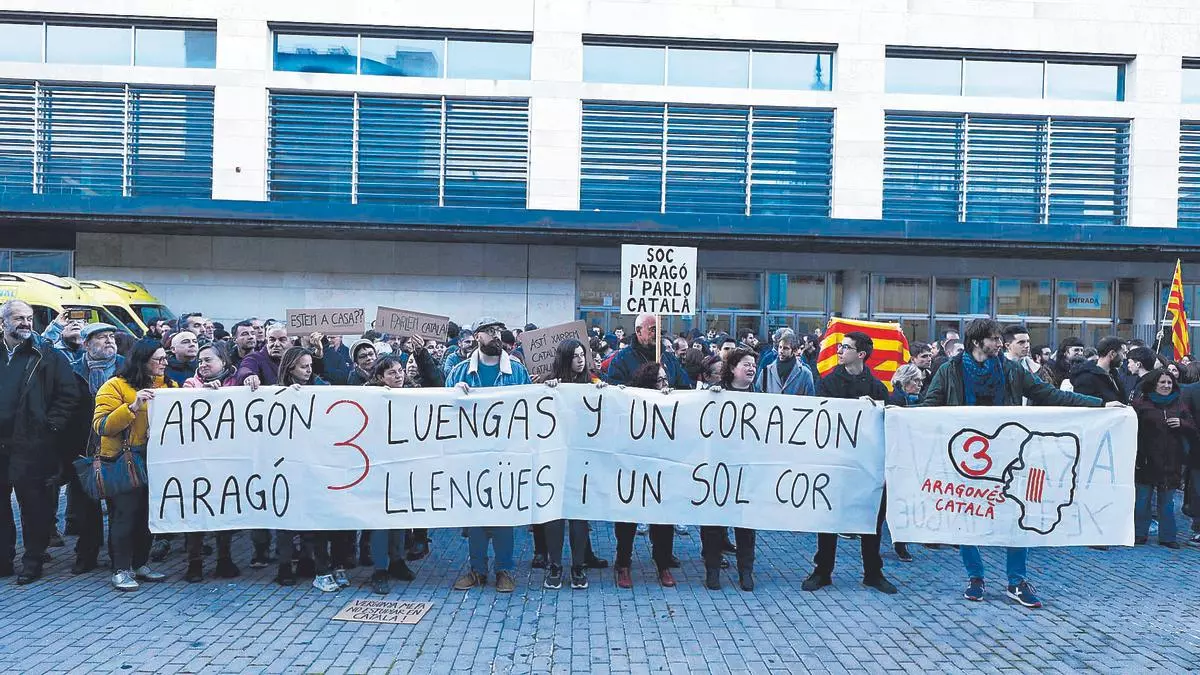 ESTEM A CASA
I PARLEM CATALÀ
SOC
D'ARAGÓ
I PARLO
CATALÀ
ASTÍ XARREM
CATALÀ
ENTRADA
ARAGÓN 3 LUENGAS Y UN CORAZÓN
ARAGÓ LLENGÜES i UN SOL COR
3
ARAGONÉS
CATALÀ
VERGUNYA ME FA
NO ESTUDIAR EN
CATALÀ!